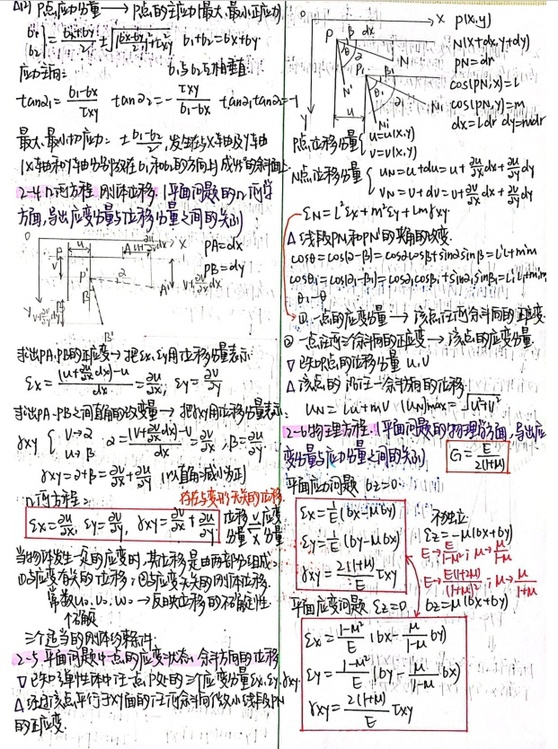 P点应力分量 → P点的主应力(最大、最小正应力)
σ1 σ2 } = (σx+σy)/2 ± √(((σx-σy)/2)²+τxy²) σ1+σ2=σx+σy
应力主向: σ1与σ2互相垂直
tanα1=(σ1-σx)/τxy tanα2=-τxy/(σ1-σx) tanα1tanα2=-1
最大、最小切应力: ±(σ1-σ2)/2, 发生在与x轴及y轴
(x轴和y轴分别放在σ1和σ2的方向)成45°的斜面上
2-4 几何方程 刚体位移 (平面问题的几何学
方面,导出应变分量与位移分量之间的关系)
u x PA=dx
P A PB=dy
y P' A'
B B'
求出PA、PB的正应变→把εx,εy用位移分量表示
εx=((u+∂u/∂x dx)-u)/dx=∂u/∂x, εy=∂v/∂y
求出PA、PB之间直角的改变量→把γxy用位移分量表示
γxy { v→α u→β α=((v+∂v/∂x dx)-v)/dx=∂v/∂x, β=∂u/∂y
γxy=α+β=∂v/∂x+∂u/∂y (以直角减小为正)
几何方程: 存在与变形无关的位移
εx=∂u/∂x, εy=∂v/∂y, γxy=∂v/∂x+∂u/∂y 位移分量 应变分量
当物体发生一定的应变时,其位移是由两部分组成:
①与应变有关的位移;②与应变无关的刚体位移.
常数u0、v0、w0→反映位移的不确定性
三个适当的刚体约束条件
2-5 平面问题中一点的应变状态、斜方向的位移
▽已知弹性体中任一点P处的三个应变分量εx,εy,γxy.
△经过该点平行于xy面的任何斜向微小线段PN
的正应变
O x P(x,y)
P β dx N(x+dx,y+dy)
θ α N PN=dr
P1 β1 cos(PN,x)=l
θ1 N1 cos(PN,y)=m
u dx=ldr dy=mdr
P点位移分量{ u=u(x,y) v=v(x,y)
N点位移分量{ uN=u+du=u+∂u/∂x dx+∂u/∂y dy
vN=v+dv=v+∂v/∂x dx+∂v/∂y dy
εN=l²εx+m²εy+lmγxy
△线段PN和PN'的夹角的改变.
cosθ=cos(α-β)=cosαcosβ+sinαsinβ=l'l+m'm
cosθ1=cos(α1-β1)=cosα1cosβ1+sinα1sinβ1=l1'l1+m1'm1
θ1-θ
①一点的应变分量→该点任何斜向的正应变
②一点任何三个斜向的正应变→该点的应变分量.
▽已知P点的位移分量 u,v
△该点的沿任一斜向的位移
uN=lu+mv |uN|max=√(u²+v²)
2-6 物理方程 (平面问题的物理学方面,导出应
变分量与应力分量之间的关系) G=E/(2(1+μ))
平面应力问题 σz=0.
εx=1/E(σx-μσy) 不独立
εy=1/E(σy-μσx) εz=-μ/E(σx+σy)
γxy=2(1+μ)/E τxy E→E/(1-μ²); μ→μ/(1-μ)
E→E(1+2μ)/(1+μ)²; μ→μ/(1+μ)
平面应变问题 εz=0 σz=μ(σx+σy)
εx=(1-μ²)/E(σx-μ/(1-μ)σy)
εy=(1-μ²)/E(σy-μ/(1-μ)σx)
γxy=2(1+μ)/E τxy